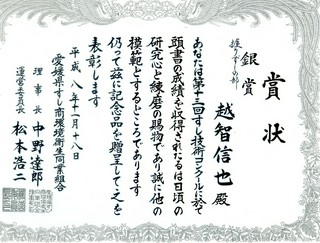 賞状
握りずしの部
銀賞
越智信也殿
あなたは第十三回すし技術コンクールに於て
頭書の成績を収得されたるは日頃の
研究心と練磨の賜物であり誠に他の
模範とするところであります
仍って茲に記念品を贈呈して之を
表彰します
平成八年十一月十八日
愛媛県すし商環境衛生同業組合
理事長 中野達郎
運営委員長 松本浩二